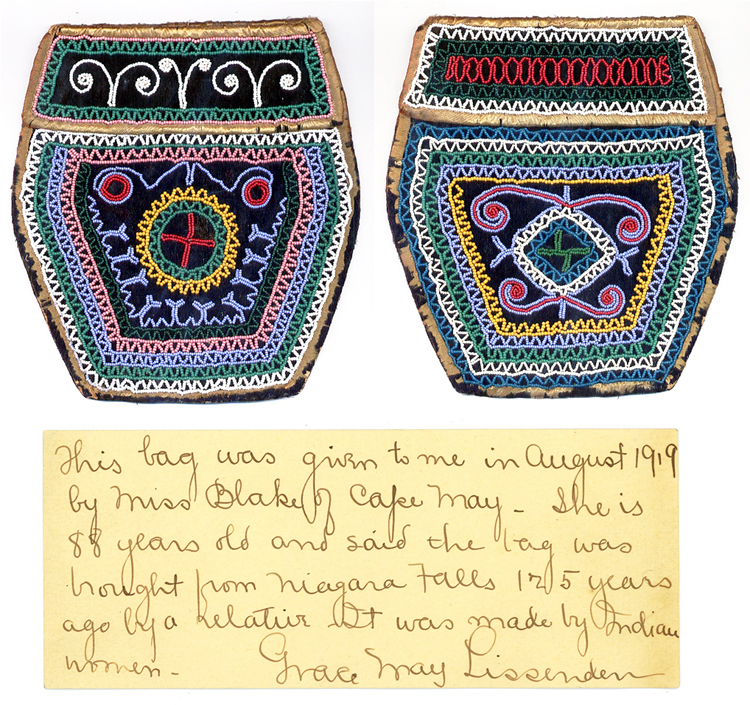 This bag was given to me in August 1919
by Miss Blake of Cape May - She is
88 years old and said the bag was
brought from Niagara Falls 125 years
ago by a relative It was made by Indian
women -
Grace May Lissenden